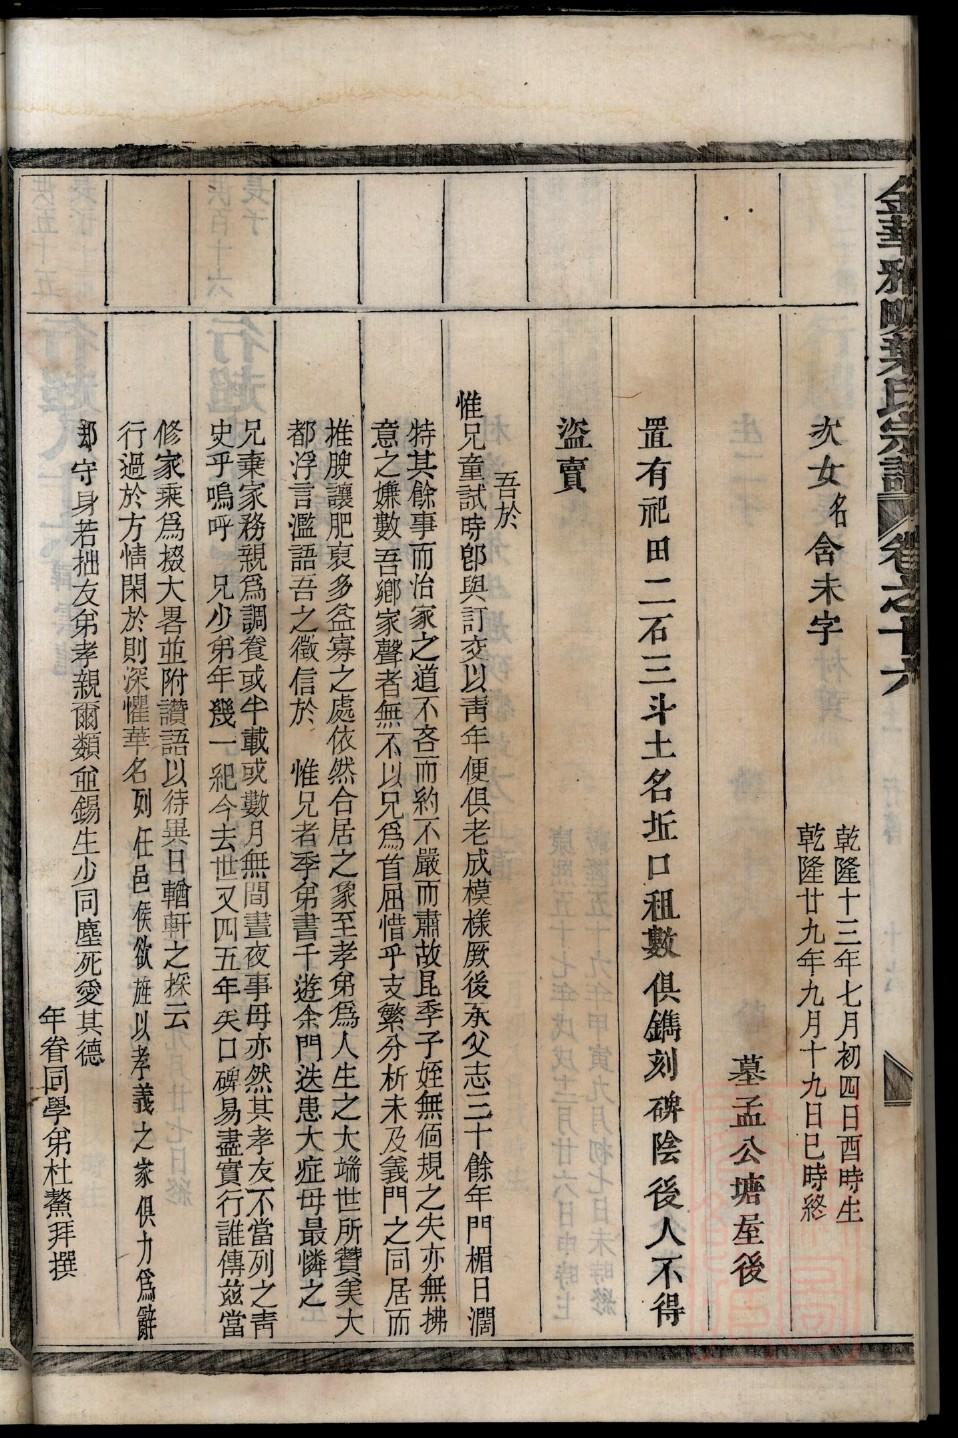 金華雅畈葉氏宗譜 卷之十六
次女名舍未字
乾隆十三年七月初四日酉時生
乾隆廿九年九月十九日巳時終
墓孟公塘塋後
置有祀田二石三斗土名坵口租數俱鐫刻碑陰後人不得
盜賣
吾於
惟兄童試時卽與訂交以靑年便俱老成模樣厥後承父志三十餘年門楣日濶
特其餘事而治家之道不吝而約不嚴而肅故昆季子姪無偭規之失亦無拂
意之嫌數吾鄕家聲者無不以兄爲首屈惜乎支繁分析未及義門之同居而
推腴讓肥裒多益寡之處依然合居之象至孝弟爲人生之大端世所贊美大
都浮言濫語吾之徵信於　惟兄者季弟書千遊余門迭患大症母最憐之
兄棄家務親爲調養或半載或數月無間晝夜事母亦然其孝友不當列之靑
史乎嗚呼　兄少弟年幾一紀今去世又四五年矣口碑易盡實行誰傳茲當
修家乘爲掇大畧並附讚語以待異日輶軒之採云
行過於方情閑於則深懼華名列任邑侯欲旌以孝義之家俱力爲辭
却守身若拙友弟孝親爾類並錫生少同塵死愛其德
年眷同學弟杜鰲拜撰